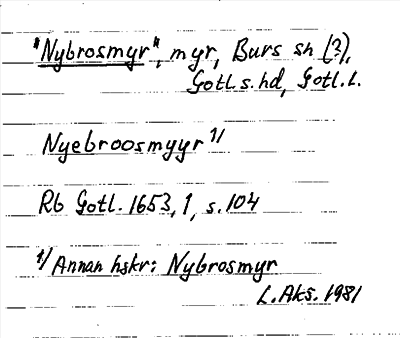 "Nybrosmyr", myr, Burs sn (?),
Gotl. s. hd, Gotl. l.
Nyebroosmyyr 1/
Rb Gotl. 1653, 1, s. 104
1/ Annan hskr: Nybrosmyr
L. Aks. 1981